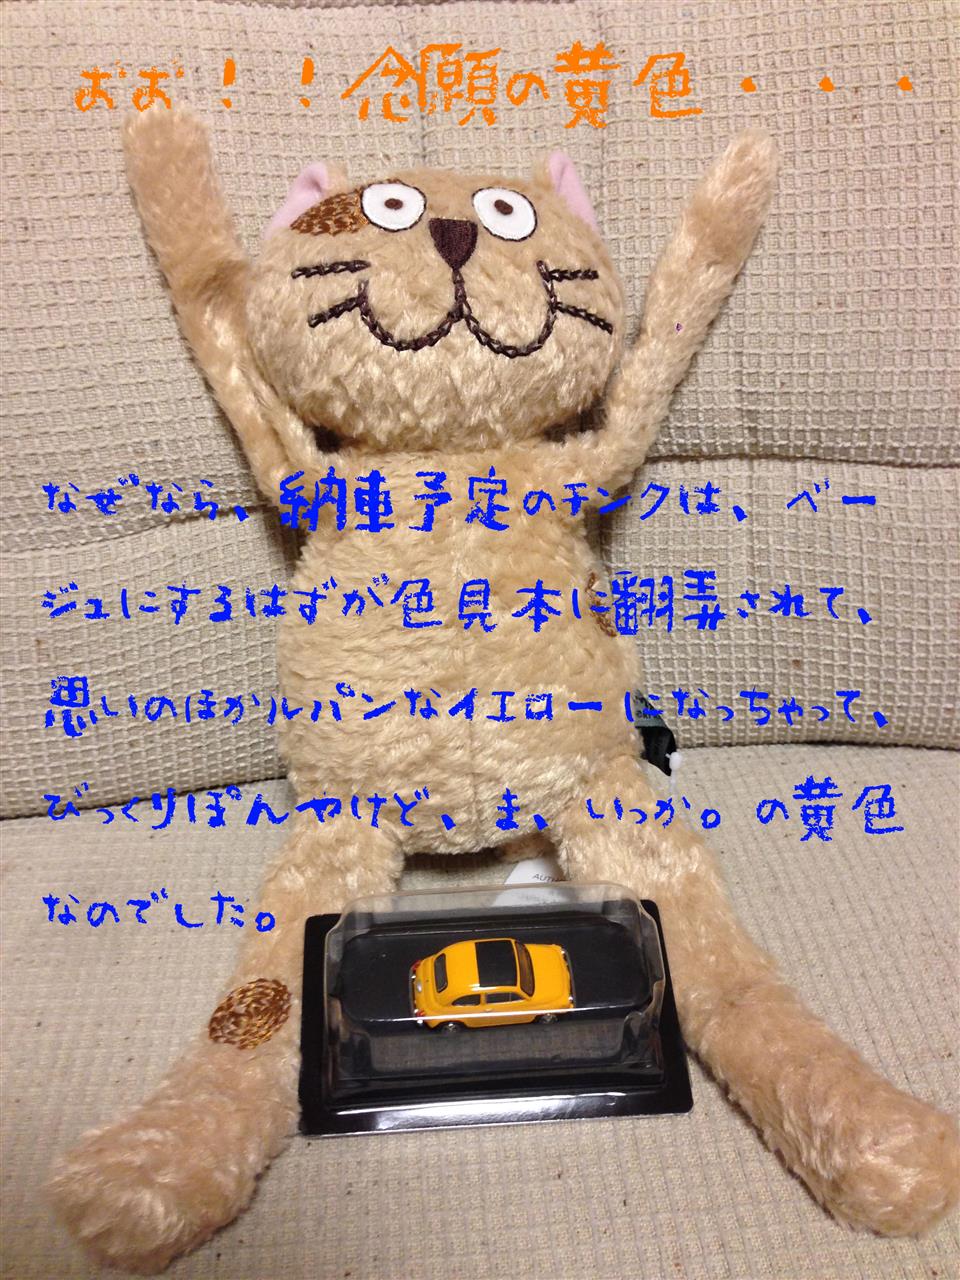 おお！！念願の黄色・・・
なぜなら、納車予定のチンクは、ベー
ジュにするはずが色見本に翻弄されて、
思いのほかルパンなイエローになっちゃって、
びっくりぽんやけど、ま、いっか。の黄色
なのでした。